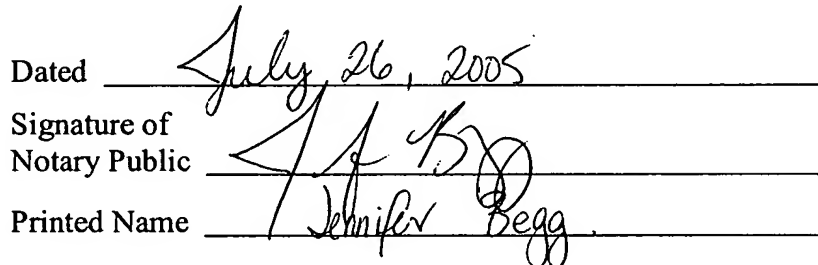 Dated July 26, 2005
Signature of
Notary Public
Printed Name Jennifer Begg.